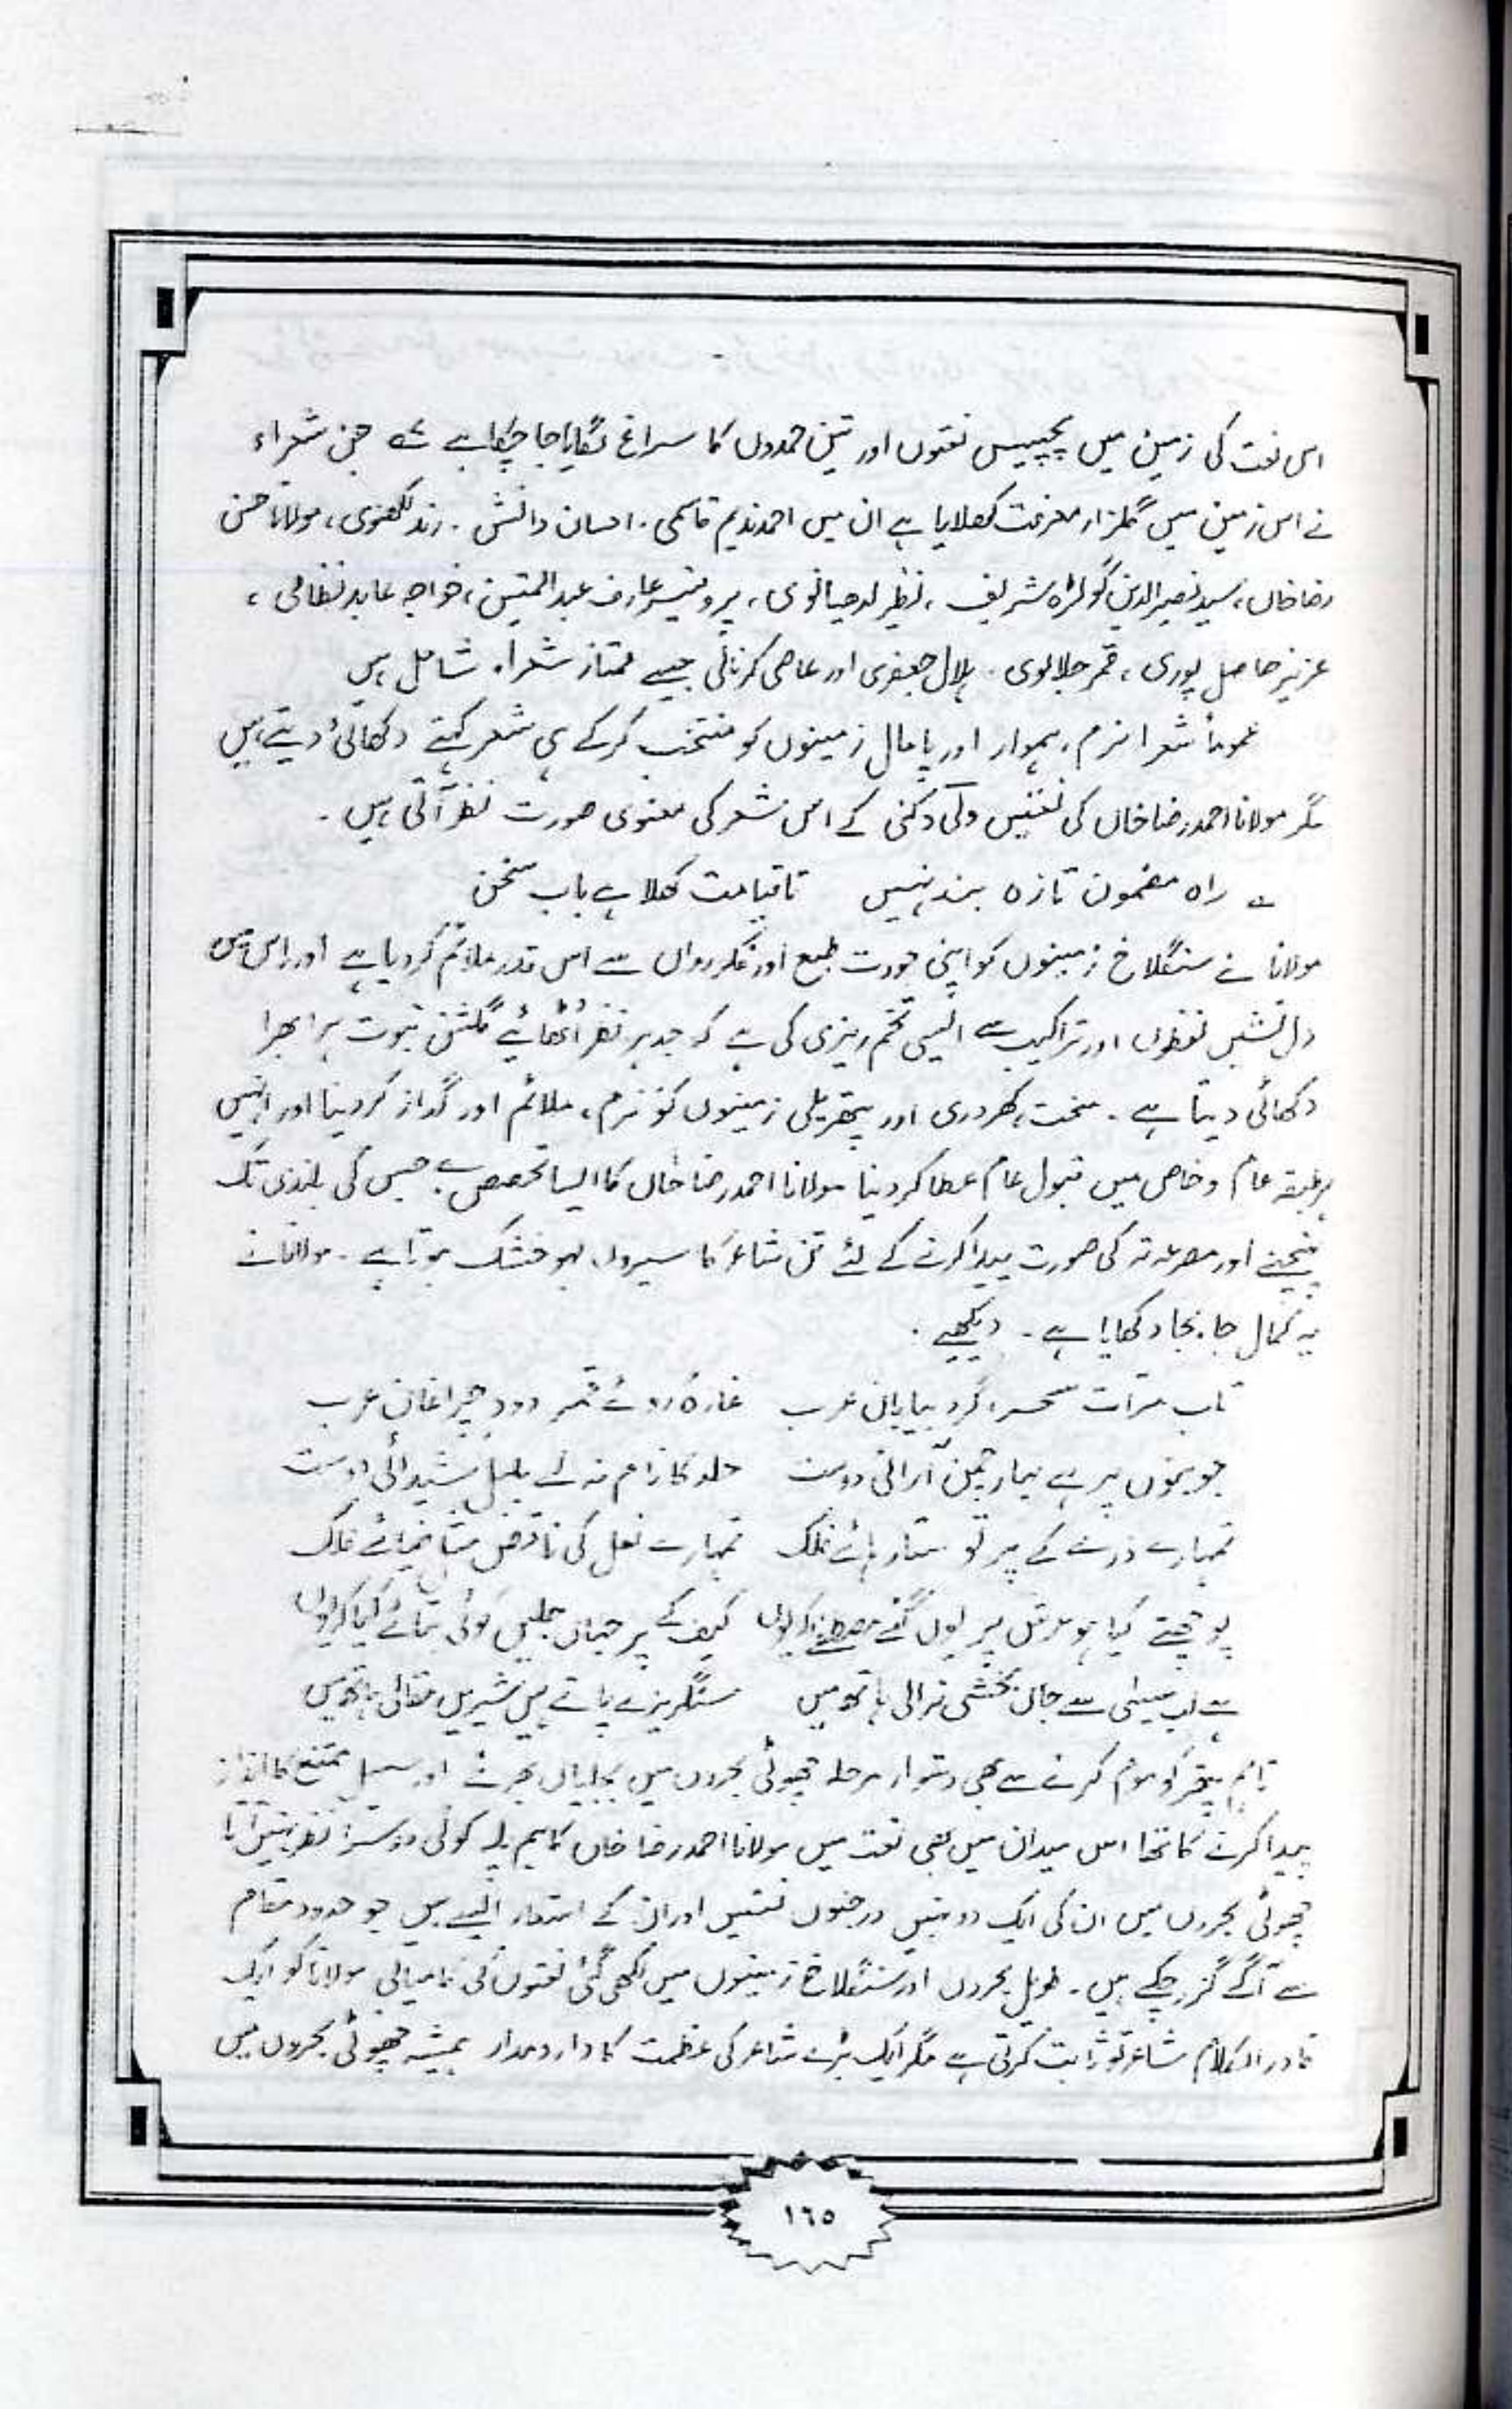 اس نعت کی زمین میں پچیس نعتوں اور تین حمدوں کا سراغ لگایا جا چکا ہے جن شعراء
نے اس زمین میں گلزار معرفت کھلایا ہے ان میں احمد ندیم قاسمی ۔ احسان دانش ۔ رند لکھنوی ، مولانا حسن
رضا خاں ، سید نصیر الدین گولڑہ شریف ، نظیر لدھیانوی ، پروفیسر عارف عبدالمتین ، خواجہ عابد نظامی ،
عزیز حاصل پوری ، قمر جلالوی ۔ ہلال جعفری اور عاصی کرنالی جیسے ممتاز شعراء شامل ہیں
عموماً شعرا نرم ، ہموار اور پامال زمینوں کو منتخب کر کے ہی شعر کہتے دکھائی دیتے ہیں
مگر مولانا احمد رضا خاں کی نعتیں ولی دکنی کے اس شعر کی معنوی صورت نظر آتی ہیں ۔
؎ راہ مضمون تازہ بند نہیں تا قیامت کھلا ہے باب سخن
مولانا نے سنگلاخ زمینوں کو اپنی جودت طبع اور فکر رواں سے اس قدر ملائم کر دیا ہے اور اس میں
دل نشیں لفظوں اور تراکیب سے ایسی تخم ریزی کی ہے کہ جدہر نظر اُٹھائیے گلشن نبوت ہرا بھرا
دکھائی دیتا ہے ۔ سخت ، کھردری اور پتھریلی زمینوں کو نرم ، ملائم اور گداز کر دینا اور انہیں
ہر طبقہ عام و خاص میں قبول عام عطا کر دینا مولانا احمد رضا خاں کا ایسا تخصص ہے جس کی بلندی تک
پہنچنے اور مصرعہ تر کی صورت پیدا کرنے کے لئے تن شاعر کا سیروں لہو خشک ہوتا ہے ۔ مولانا نے
یہ کمال جا بجا دکھایا ہے ۔ دیکھیے ۔
تاب مرات سحر ، گرد بیابان عرب غازہ روئے قمر دود چراغان عرب
جوبنوں پر ہے بہار چمن آرائی دوست خلد کا نام نہ لے بلبل شیدائی دوست
تمہارے ذرے کے پرتو ستار ہائے فلک تمہارے نعل کی ناقص مثل ضیائے فلک
پوچھتے کیا ہو عرش پر یوں گئے مصطفےٰ کہ یوں کیف کے پر جہاں جلیں کوئی بتائے کیا کہ یوں
ہے لب عیسیٰ سے جاں بخشی نرالی ہاتھ میں سنگریزے پاتے ہیں شیریں مقالی ہاتھ میں
تاہم پتھر کو موم کرنے سے بھی دشوار مرحلہ چھوٹی بحروں میں بجلیاں بھرنے اور سہل ممتنع کا انداز
پیدا کرنے کا تھا اس میدان میں بھی نعت میں مولانا احمد رضا خاں کا ہم پلہ کوئی دوسرا نظر نہیں آیا
چھوٹی بحروں میں ان کی ایک دو نہیں درجنوں نعتیں اور ان کے اشعار ایسے ہیں جو حدود مقام
سے آگے گزر چکے ہیں ۔ طویل بحروں اور سنگلاخ زمینوں میں لکھی گئی نعتوں کی کامیابی مولانا کو ایک
قادر الکلام شاعر تو ثابت کرتی ہے مگر ایک بڑے شاعر کی عظمت کا دارومدار ہمیشہ چھوٹی بحروں میں
١٦٥